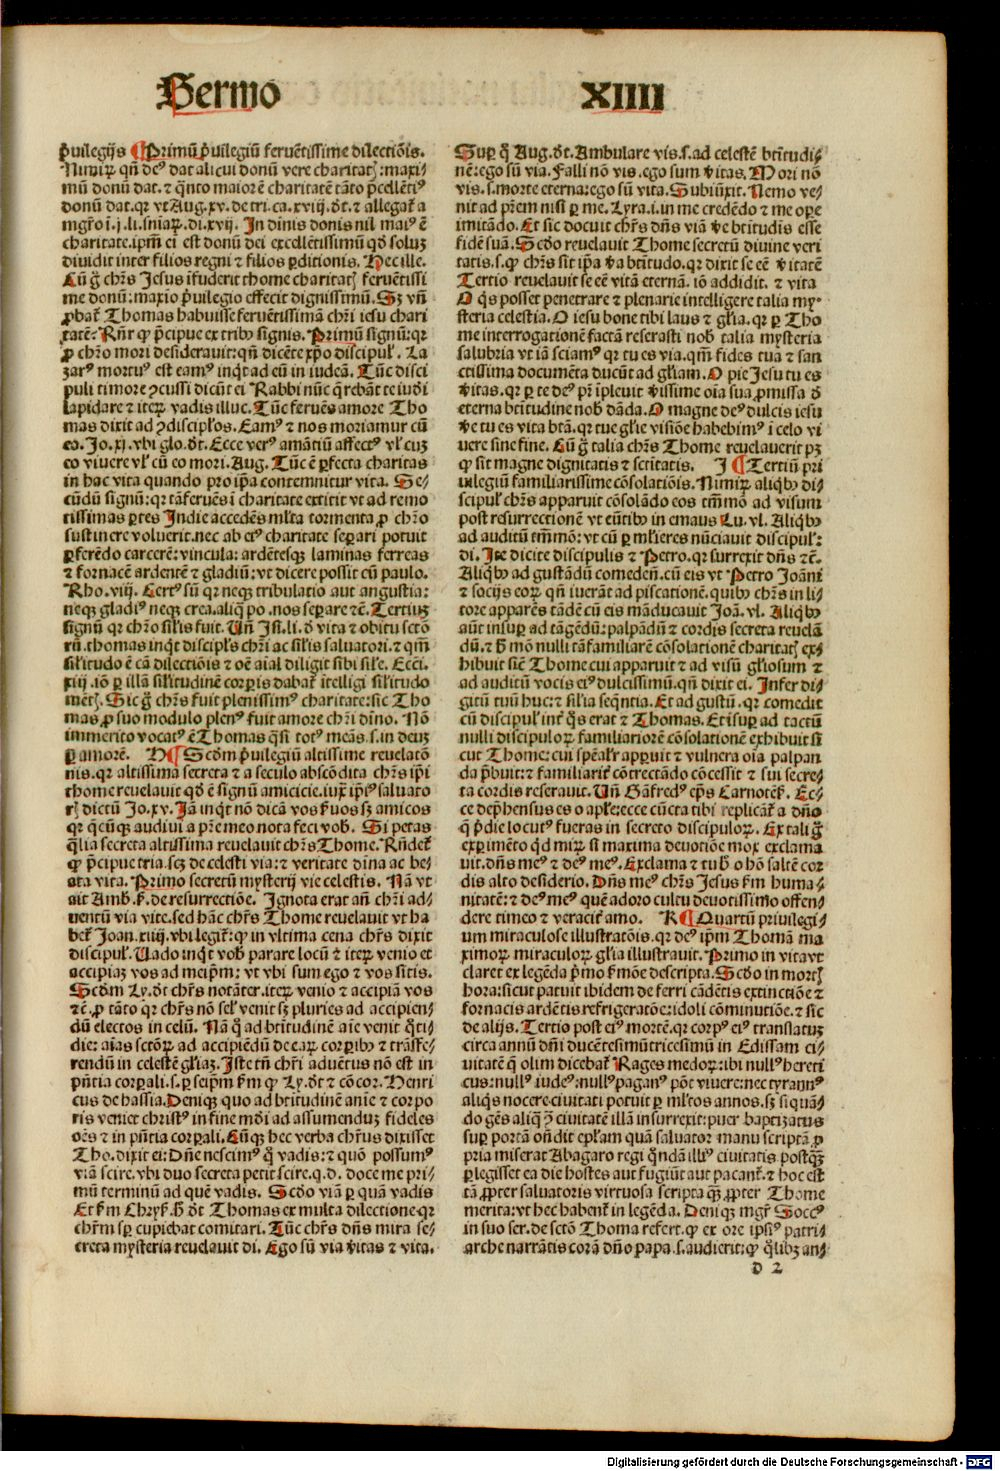 Sermo
XIIII
p̱uilegijs ¶ Primū p̱uilegiū feruētissime dilectiōis.
Nimiꝝ qn̄ deꝰ dat alicui donū vere charitatꝭ: maxi⸗
mū donū dat. ⁊ q̄nto maiorē charitatē tāto p̄cellētiꝰ
donū dat. qr vt Aug. xv. de tri. ca. xviij. dt. ⁊ allegat̄ a
mgr̄o ī. j. li. sniaꝝ. di. xvij. In dinis donis nil maiꝰ ē
charitate. ipm̄ ei est donū dei excellētissimū qd̓ soluꝫ
diuidit inter filios regni ⁊ filios p̱ditionis. Hec ille.
Cū g̊ chr̄s Jesus īfuderit thome charitatꝭ feruētissi
me donū: maxīo p̄uilegio effecit dignissimū. Sꝫ vn̄
ꝓbat̄ Thomas habuisse feruētissimā chr̄i iesu chari
tatē: Rn̄r ꝙ p̄cipue ex tribꝰ signis. Primū signū: qr
ꝓ chr̄o mori desiderauit: qn̄ dicēte xp̄o discipul̓. La
zarꝰ mortuꝰ est eamꝰ inqt ad eū in iudeā. Tūc disci
puli timore ꝯcussi dicūt ei Rabbi nūc q̄rebāt te iudi
lapidare ⁊ iteꝝ vadis illuc. Tūc feruēs amore Tho
mas dixit ad ꝯdiscipl̓os. Eamꝰ ⁊ nos moriamur cū
eo. Jo. xj. vbi glo. dt. Ecce verꝰ amātiū affectꝰ vl̓ cuꝫ
eo viuere vl̓ cū eo mori. Aug. Tūc ē p̱fecta charitas
in hac vita quando pro ip̄a contemnitur vita. Se⸗
cūdū signū: qr tā feruēs ī charitate extitit vt ad remo
tissimas p̱tes Indie accedēs ml̓ta tormenta ꝓ chr̄o
sustinere voluerit. nec ab eiꝰ charitate sep̱ari potuit
p̱ferēdo carcerē: vincula: ardētesqꝫ laminas ferreas
⁊ fornacē ardentē ⁊ gladiū: vt dicere possit cū paulo.
Rho. viij. Certꝰ sū qr neqꝫ tribulatio aut angustia:
neqꝫ gladiꝰ neqꝫ crea. aliq̄ po. nos sep̱are ⁊c̄. Tertiuꝫ
signū qr chr̄o sil̓is fuit. Vn̄ Isi. li. d̓ vita ⁊ obitu sctō
rū. thomas inqt discipl̓s chr̄i ac sil̓is saluatori. ⁊ qm̄
sil̓itudo ē cā dilectiōis ⁊ oē aīal diligit sibi sil̓e. Ecci.
xiij. iō p̱ illā sil̓itudinē corp̱is dabat̄ ītelligi sil̓itudo
mētꝭ. Sic g̊ chr̄s fuit plenissimꝰ charitate: sic Tho
mas ꝓ suo modulo plenꝰ fuit amore chr̄i dn̄o. Nō
immerito vocatꝰ ē Thomas q̄si totꝰ meās. s. in deuꝫ
p̱ amorē. H ¶ Scdm̄ p̄uilegiū altissime reuelatō
nis. qr altissima secreta ⁊ a seculo abscōdita chr̄s ip̄i
thome reuelauit qd̓ ē signū amicicie. iux̄ ip̄iꝰ saluato
rꝭ dictū Jo. xv. Iā inqt nō dicā vos p̱uos sꝫ amicos
qr q̄cūqꝫ audiui a pr̄e meo nota feci vob. Si petas
q̄lia secreta altissima reuelauit chr̄s Thome. Rn̄det̄
ꝙ p̄cipue tria. scꝫ de celesti via: ⁊ veritate dīna ac be⸗
ata vita. Primo secretū mysterij vie celestis. Nā vt
ait Amb. ẜ. de resurrectiōe. Ignota erat an̄ chr̄i ad⸗
uentū via vite. sed hāc chr̄s Thome reuelauit vt ha
bet̄ Joan. xiiij. vbi legit̄: ꝙ in vltima cena chr̄s dixit
discipul̓. Vado inqt vob parare locū ⁊ iteꝝ venio et
accipiaꝫ vos ad meip̄m: vt vbi sum ego ⁊ vos sitis.
Scdm̄ Ly. dt chr̄s notāter. iteꝝ venio ⁊ accipiā vos
⁊c̄. ꝓ tāto qr chr̄s nō sel̓ venit sꝫ pluries ad accipien⸗
dū electos in celū. Nā q̊ ad btitudinē aīe venit q̊ti⸗
die: aīas sctōꝝ ad accipiēdū de eaꝝ corꝑibꝰ ⁊ trāsfe⸗
rendū in celestē gl̓iaꝫ. Iste tn̄ chr̄i aduētus nō est in
pn̄tia corp̱ali. s. p̱ seip̄m ẜm ꝙ Ly. dt ⁊ cōcor. Henri
cus de hassia. Deniqꝫ quo ad btitudinē anīe ⁊ corpo
ris veniet christꝰ in fine mūdi ad assumenduꝫ fideles
oēs ⁊ in pn̄tia corp̱ali. Cūqꝫ hec verba chr̄us dixisset
Tho. dixit ei: Dn̄e nescimꝰ q̊ vadis: ⁊ quō possumꝰ
viā scire. vbi duo secreta petit scire. q. d. doce me pri⸗
mū terminū ad quē vadis. Scd̓o viā p̱ quā vadis
Et ẜm Chryẜ. h̄ dt Thomas ex multa dilectione qr
chr̄m sp̱ cupiebat comitari. Tūc chr̄s dn̄s mira se⸗
creta mysteria reuelauit di. Ego sū via v̓itas ⁊ vita.
Sup̱ q̊ Aug. dt. Ambulare vis. s. ad celestē btitudi⸗
nē: ego sū via. Falli nō vis. ego sum v̓itas. Mori nō
vis. s. morte eterna: ego sū vita. Subiūxit. Nemo ve⸗
nit ad pr̄em nisi p̱ me. Lyra. i. in me credēdo ⁊ me oꝑe
imitādo. Et sic docuit chr̄s dn̄s viā v̓e btitudis esse
fidē suā. Scd̓o reuelauit Thome secretū diuine veri
tatis. s. ꝙ chr̄s sit ip̄a v̓a btitudo. qr dixit se eē v̓itatē
Tertio reuelauit se eē vitā eternā. iō addidit. ⁊ vita
O q̄s posset penetrare ⁊ plenarie intelligere talia my⸗
steria celestia. O iesu bone tibi laus ⁊ gl̓ia. qr p̱ Tho
me interrogationē factā reserasti nob talia mysteria
salubria vt iā sciamꝰ qr tu es via. qm̄ fides tua ⁊ san
ctissima documēta ducūt ad gl̓iam. O pie Jesu tu es
v̓itas. qr p̱ te deꝰ pr̄ īpleuit v̓issime oīa sua ꝓmissa d̓
eterna btitudine nob dāda. O magne deꝰ dulcis iesu
v̓e tu es vita btā. qr tue gl̓ie visiōe habebimꝰ ī celo vi
uere sine fine. Cū g̊ talia chr̄s Thome reuelauerit pꝫ
ꝙ sit magne dignitatis ⁊ sctitatis. I ¶ Tertiū pri
uilegiū familiarissime cōsolatiōis. Nimiꝝ aliqbꝰ di⸗
scipul̓ chr̄s apparuit cōsolādo eos tm̄mō ad visum
post resurrectionē vt eūtibꝰ in emaus Lu. vl. Aliqbꝰ
ad auditū tm̄mō: vt cū p̱ ml̓ieres nūciauit discipul̓:
di. Ite dicite discipulis ⁊ Petro. qr surrexit dn̄s ⁊c̄.
Aliqbꝰ ad gustādū comedeń. cū eis vt Petro Joāni
⁊ socijs eoꝝ qn̄ iuerāt ad piscationē. quibꝰ chr̄s in li⸗
tore apparēs tādē cū eis māducauit Joā. vl. Aliqbꝰ
aūt insup̱ ad tāgēdū: palpādū ⁊ cordis secreta reuelā
dū. ⁊ h̄ mō nulli tā familiarē cōsolationē charitatꝭ ex⸗
hibuit sicē Thome cui apparuit ⁊ ad visū gl̓iosum ⁊
ad auditū vocis eiꝰ dulcissimū. qn̄ dixit ei. Infer di⸗
gitū tuū huc: ⁊ sil̓ia seq̄ntia. Et ad gustū. qr comedit
cū discipul̓ int̓ q̄s erat ⁊ Thomas. Et insup̱ ad tactū
nulli discipuloꝝ familiariorē cōsolationē exhibuit si
cut Thome: cui spēal̓r apparuit ⁊ vulnera oīa palpan
da p̄buit: ⁊ familiarit̓ cōtrectādo cōcessit ⁊ sui secre⸗
ta cordis reserauit. Vn̄ Gāfredꝰ ep̄s Carnoteń. Ec⸗
ce dep̄hensus es o apl̓e: ecce cūcta tibi replicat̄ a dn̄o
q̄ p̄die locutꝰ fueras in secreto discipuloꝝ. Ex tali g̊
exp̱imēto qd miꝝ si maxima deuotiōe mox exclama
uit. dn̄s meꝰ ⁊ deꝰ meꝰ. Exclama ⁊ tu h̄ o hō saltē cor
dis alto desiderio. Dn̄s meꝰ chr̄s Jesus ẜm huma⸗
nitatē: ⁊ deꝰ meꝰ quē adoro cultu deuotissimo offen⸗
dere timeo ⁊ veracit̓ amo. K ¶ Quartū priuilegi⸗
um miraculose illustratōis. qr deꝰ ip̄m Thomā ma
ximoꝝ miraculoꝝ gl̓ia illustrauit. Primo in vita vt
claret ex legēda p̄mo ẜmōe descripta. Scd̓o in mortꝭ
hora: sicut patuit ibidem de ferri cādētis extinctiōe ⁊
fornacis ardētis refrigeratōe: idoli cōminutiōe. ⁊ sic
de alijs. Tertio post eiꝰ mortē. qr corpꝰ eiꝰ translatuꝫ
circa annū dn̄i ducētesimūtricesimū in Edissam ci⸗
uitatē q̄ olim dicebat̄ Rages medoꝝ: ibi nullꝰ hereti
cus: nullꝰ iudeꝰ: nullꝰ paganꝰ pōt viuere: nec tyrannꝰ
aliq̄s nocere ciuitati potuit p̱ ml̓tos annos. sꝫ si quā⸗
do gēs aliq̄ ꝯ ciuitatē illā insurrexit: puer baptizatus
sup̱ portā on̄dit epl̓am quā saluator manu scriptā ꝓ
pria miserat Abagaro regi q̄ndā illiꝰ ciuitatis postq̄ꝫ
p̱legisset ea die hostes aut fugiūt aut pacant̄. ⁊ hoc est
tā ꝓpter saluatoris virtuosa scripta q̄ꝫ ꝓpter Thome
merita: vt hec habent̄ in legēda. Deniqꝫ mgr̄ Socciꝰ
in suo ser. de sctō Thoma refert. ꝙ ex ore ip̄siꝰ patri⸗
arche narrātis corā dn̄o papa. s. audierit: ꝙ q̊libꝫ an⸗
D 2
Digitalisierung gefördert durch die Deutsche Forschungsgemeinschaft - DFG